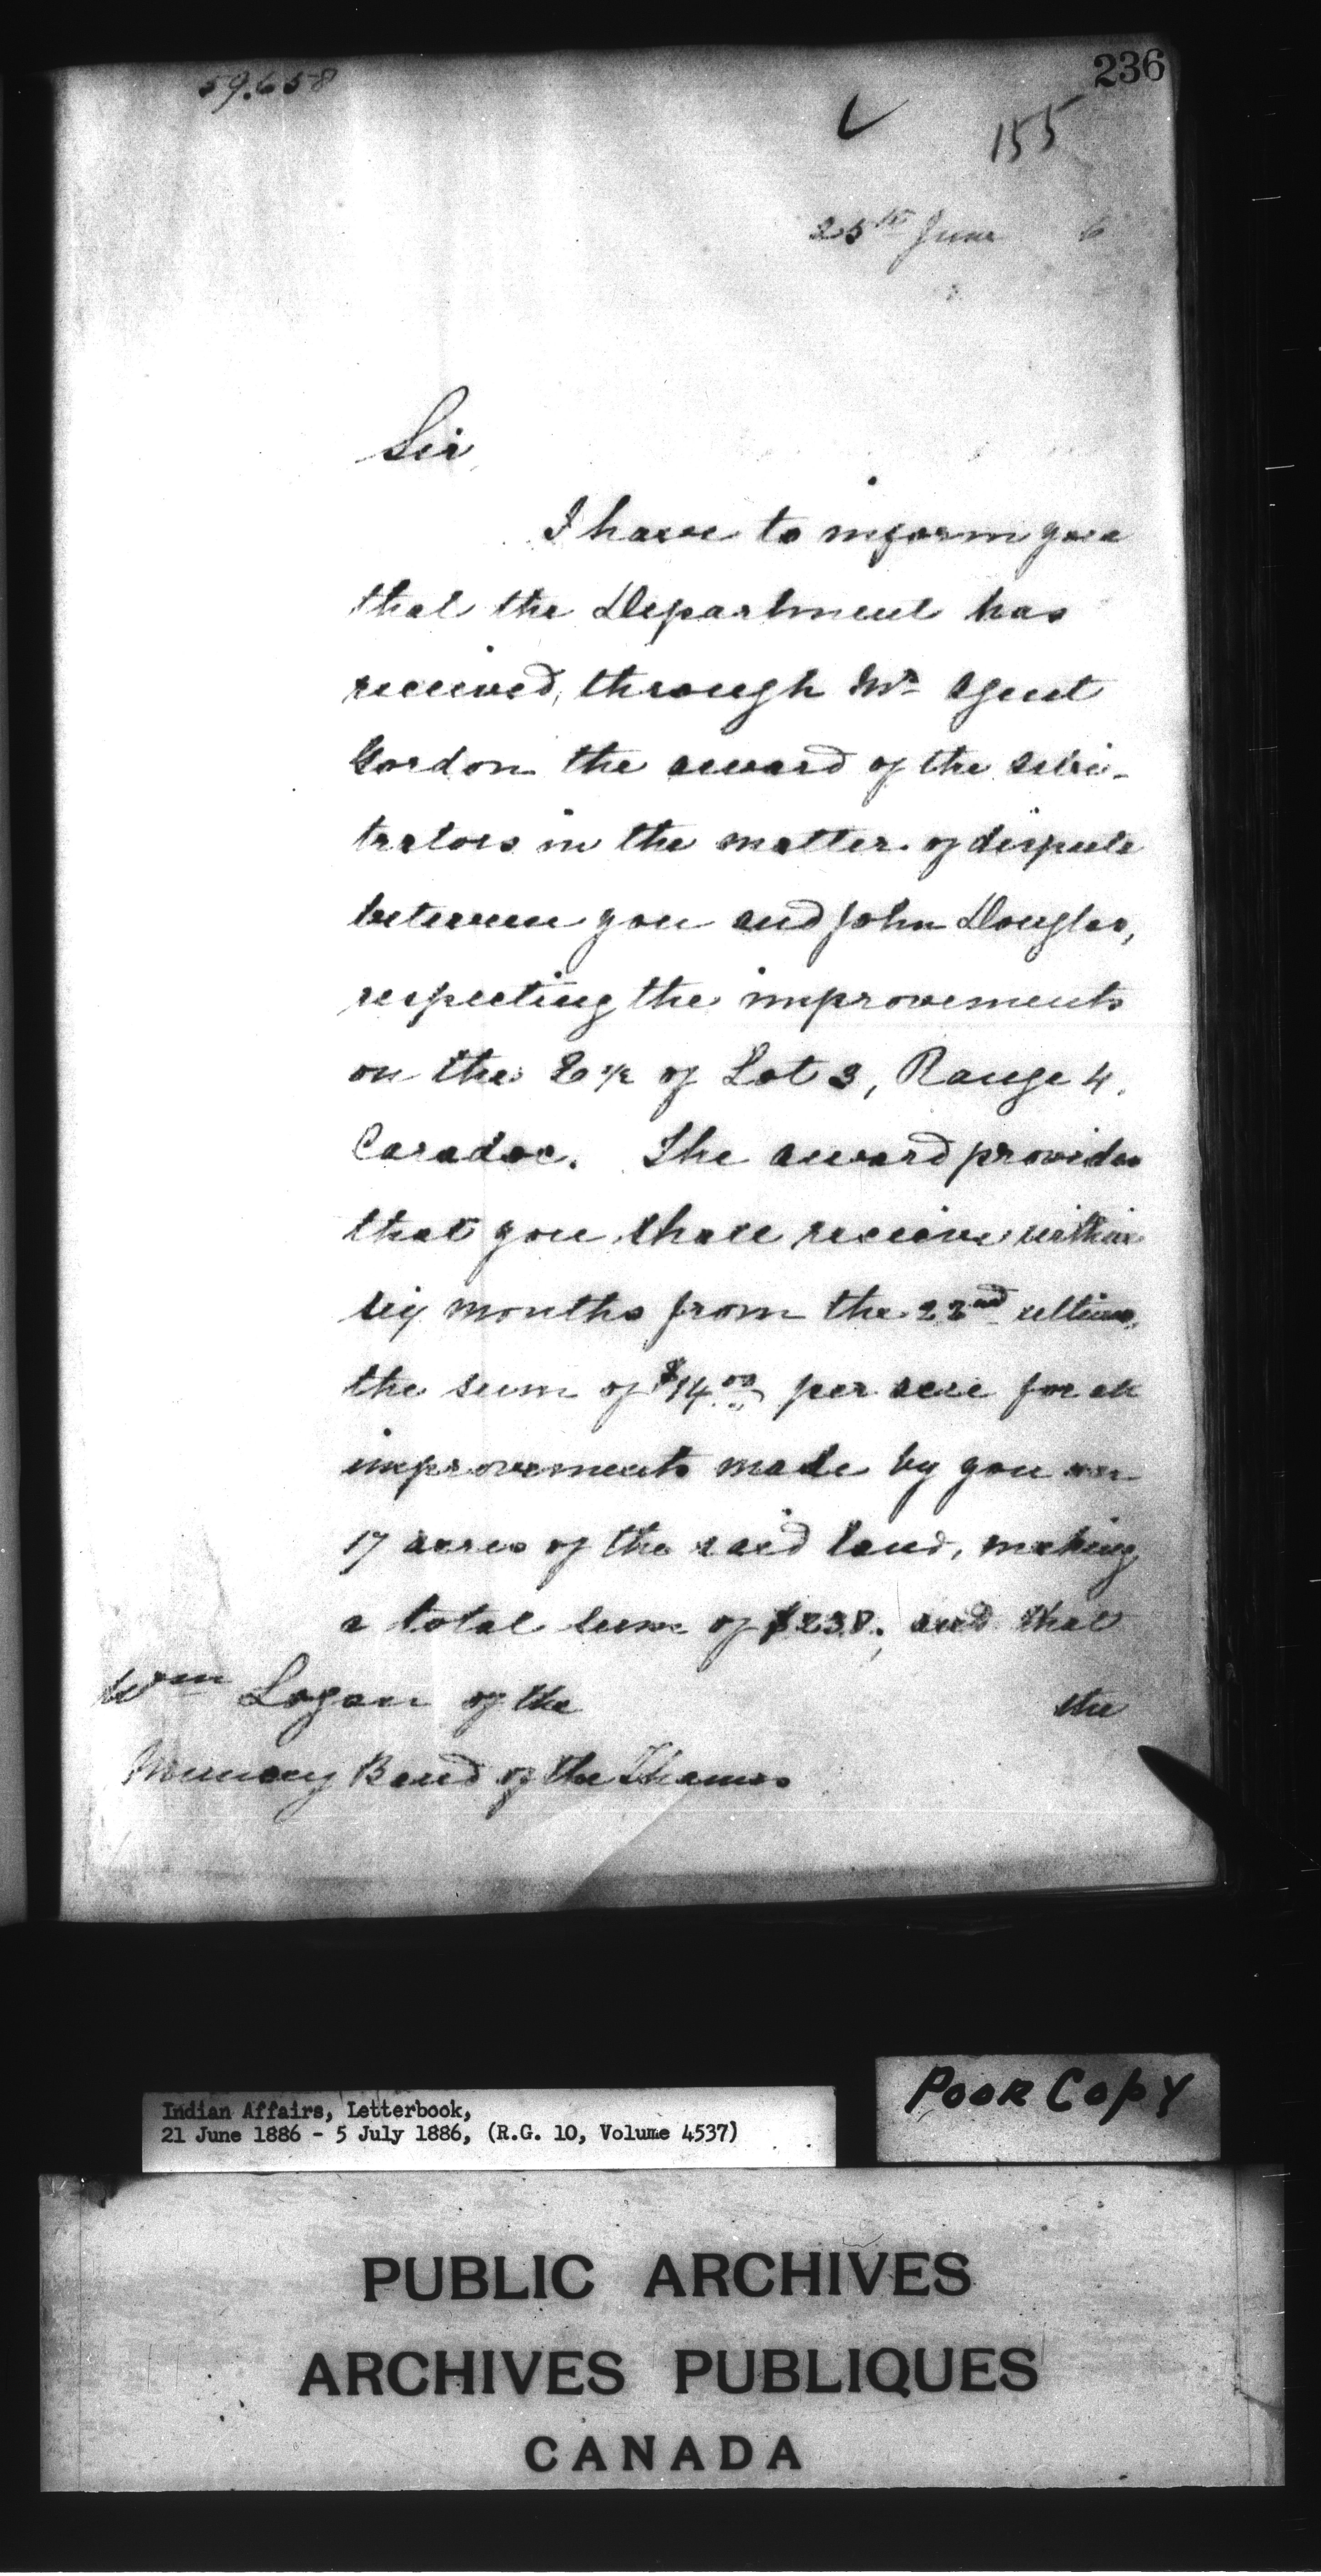 59.658
236
155
25th June 6
Sir,
I have to inform you
that the Department has
received, through Mr Agent
Gordon the award of the arbi-
trators in the matter of dispute
between you and John Douglas,
respecting the improvements
on the E ½ of Lot 3, Range 4,
Caradoc. The award provides
that you shall receive within
six months from the 22nd ultimo,
the sum of $14.00 per acre for all
improvements made by you on
17 acres of the said land, making
a total sum of $238., and that
Wm Logan of the
the
Muncey Band of the Thames
Poor Copy
Indian Affairs, Letterbook,
21 June 1886 - 5 July 1886, (R.G. 10, Volume 4537)
PUBLIC ARCHIVES
ARCHIVES PUBLIQUES
CANADA